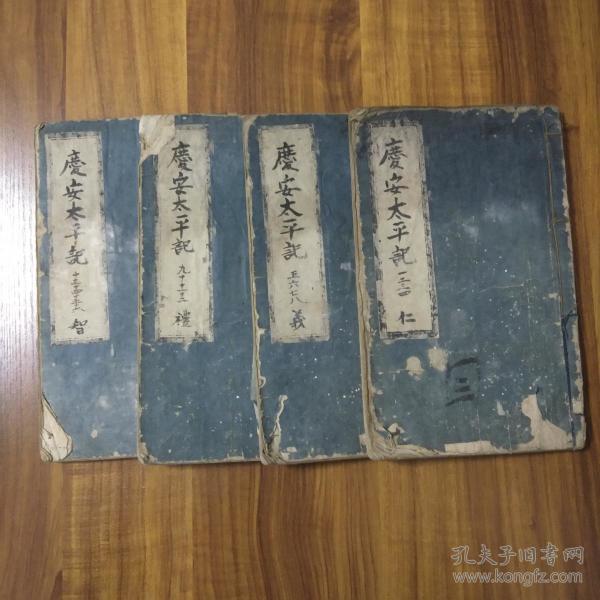 慶安太平記
一二三四
仁
三
慶安太平記
五六七八
義
慶安太平記
九十十一十二
禮
慶安太平記
智
孔夫子旧书网
www.kongfz.com